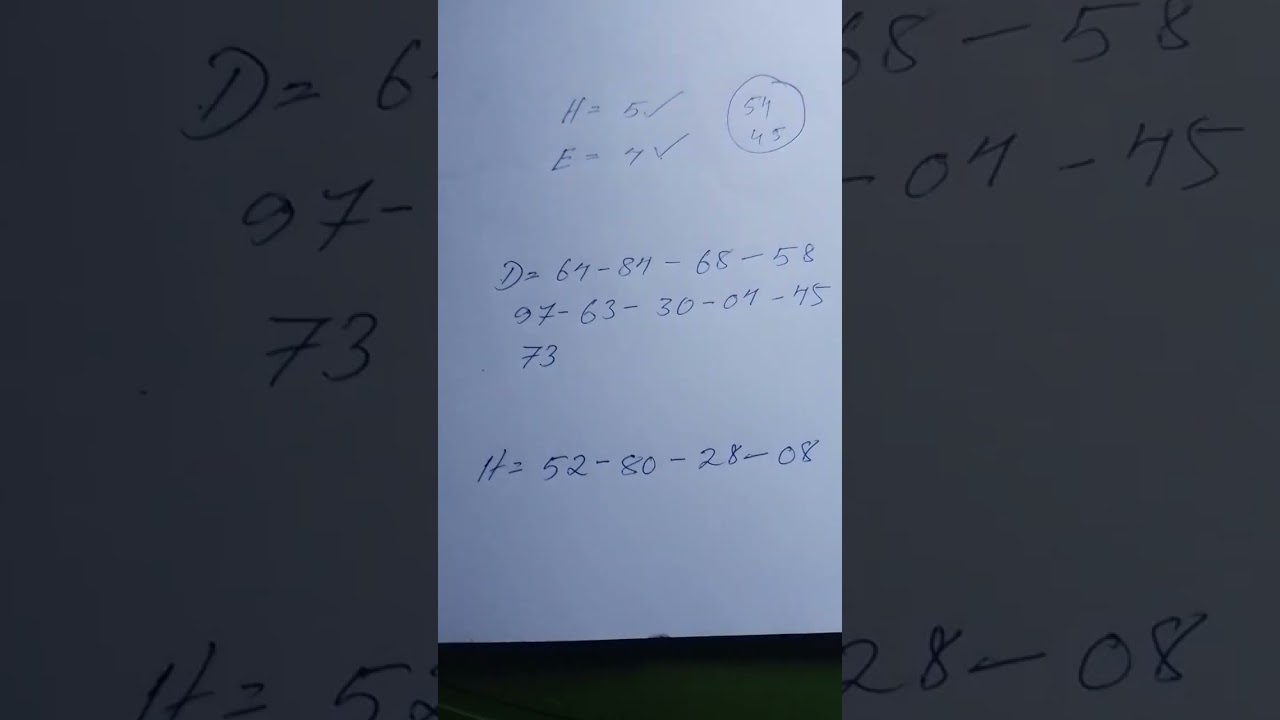 H = 5✓
E = 4✓
54
45
D= 64-84-68-58
97-63-30-04-45
73
H= 52-80-28-08